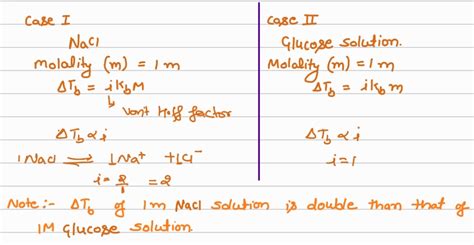 Case I
NaCl
Molality (m) = 1m
ΔTb = i kb M
Vant Hoff factor
ΔTb ∝ i
1NaCl ⇌ 1Na⁺ + 1Cl⁻
i = 2/1 = 2
Case II
Glucose solution.
Molality (m) = 1m
ΔTb = i kb m
ΔTb ∝ i
i = 1
Note :- ΔTb of 1m NaCl solution is double than that of
1M Glucose solution.